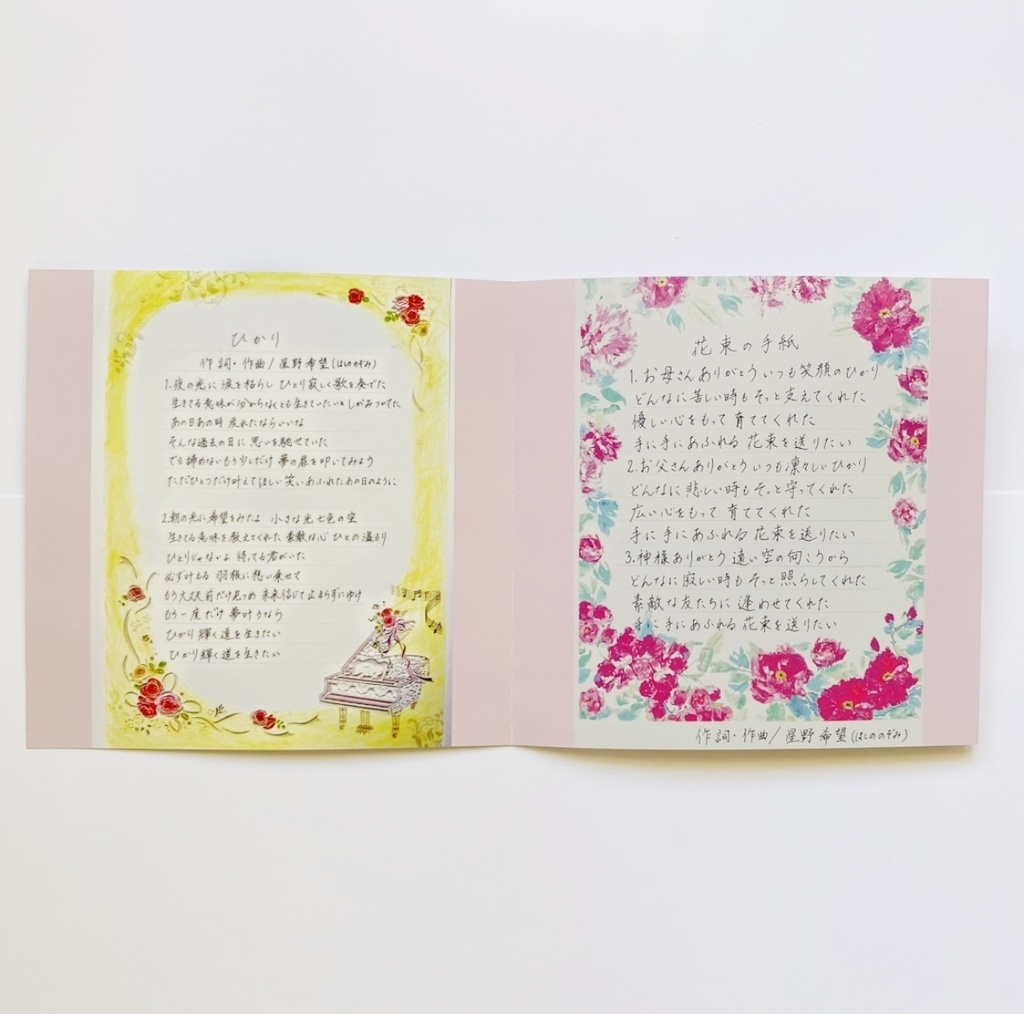 ひかり
作詞・作曲/星野希望(ほしののぞみ)
1.夜の光に涙を枯らし ひとり寂しく歌を奏でた
生きてる意味が分からなくとも生きていたいとしがみついてた
あの日あの時 戻れたならいいな
そんな過去の日に 思いを馳せていた
でも諦めないもう少しだけ 夢の扉を叩いてみよう
ただひとつだけ叶えてほしい 笑いあふれたあの日のように
2.朝の光に希望をみたよ 小さな光七色の空
生きてる意味を教えてくれた 素敵な心 ひとの温もり
ひとりじゃないよ 待ってる君がいた
必ず叶える 羽根に想い乗せて
もう大丈夫前だけ見つめ 未来信じて止まらずにゆけ
もう一度だけ 夢叶うなら
ひかり 輝く道を生きたい
ひかり 輝く道を生きたい
花束の手紙
1.お母さんありがとういつも笑顔のひかり
どんなに苦しい時もそっと支えてくれた
優しい心をもって育ててくれた
手に手にあふれる 花束を送りたい
2.お父さんありがとういつも凛々しいひかり
どんなに悲しい時もそっと守ってくれた
広い心をもって 育ててくれた
手に手にあふれる 花束を送りたい
3.神様ありがとう 遠い空の向こうから
どんなに寂しい時もそっと照らしてくれた
素敵な友たちに 逢わせてくれた
手に手にあふれる 花束を送りたい
作詞・作曲/星野希望(ほしののぞみ)